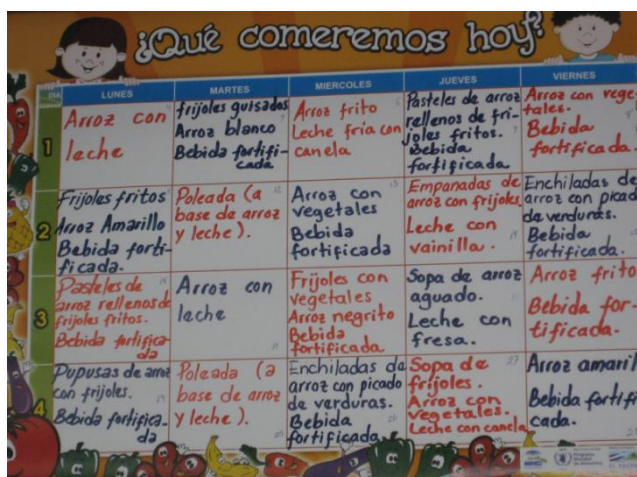 ¿Qué comeremos hoy?
LUNES
MARTES
MIERCOLES
JUEVES
VIERNES
1
Arroz con
leche
frijoles guisados
Arroz blanco
Bebida fortifi-
cada
Arroz frito
Leche fria con
canela
Pasteles de arroz
rellenos de fri-
joles fritos.
Bebida
fortificada
Arroz con vege-
tales.
Bebida
fortificada.
2
Frijoles fritos
Arroz Amarillo
Bebida forti-
ficada.
Poleada (a
base de arroz
y leche).
Arroz con
vegetales
Bebida
fortificada
Empanadas de
arroz con frijoles
Leche con
vainilla.
Enchiladas de
arroz con picad
de verduras.
Bebida
fortificada.
3
Pasteles de
arroz rellenos de
frijoles fritos.
Bebida fortifica-
da
Arroz con
leche
Frijoles con
vegetales
Arroz negrito
Bebida
fortificada
Sopa de arroz
aguado.
Leche con
fresa.
Arroz frito
Bebida for-
tificada.
4
Pupusas de arroz
con frijoles.
Bebida fortifica-
da
Poleada (a
base de arroz
y leche).
Enchiladas de
arroz con picado
de verduras.
Bebida
fortificada
Sopa de
frijoles.
Arroz con
vegetales.
Leche con canela
Arroz amaril
Bebida fortifi
cada.